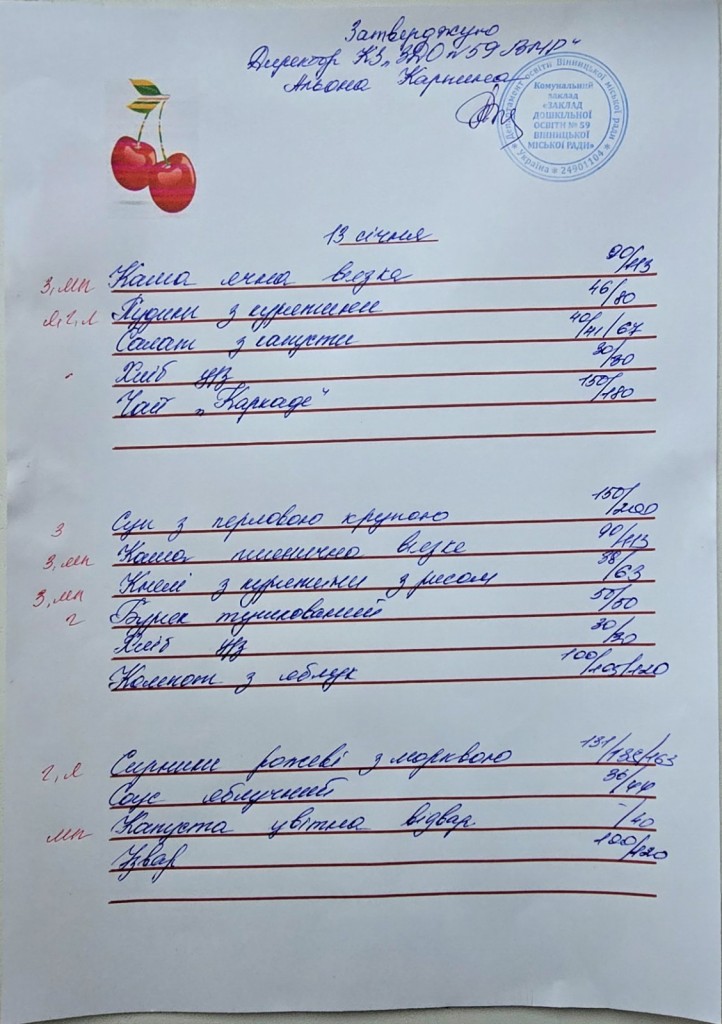 Затверджую
Директор КЗ „ЗДО №59 ВМР"
Альона Карпинса
Департамент освіти Вінницької міської ради
* Україна * 24901104 *
Комунальний
заклад
«ЗАКЛАД
ДОШКІЛЬНОЇ
ОСВІТИ № 59
ВІННИЦЬКОЇ
МІСЬКОЇ РАДИ»
13 січня
з, мп Каша ячна вязка 90/113
я, г, л Пудинг з курятини 46/80
Салат з капусти 40/41/67
Хліб ц/з 20/30
Чай „Каркаде" 150/180
з Суп з перловою крупою 150/200
з, мп Каша пшенична вязка 90/113
з, мп Кнелі з курятини з рисом 38/63
г Буряк тушкований 50/50
Хліб ц/з 20/30
Компот з яблук 100/105/120
г, я Сирники рожеві з морквою 131/138/163
Соус яблучний 36/44
мп Капуста цвітна відвар -/40
Узвар 100/120